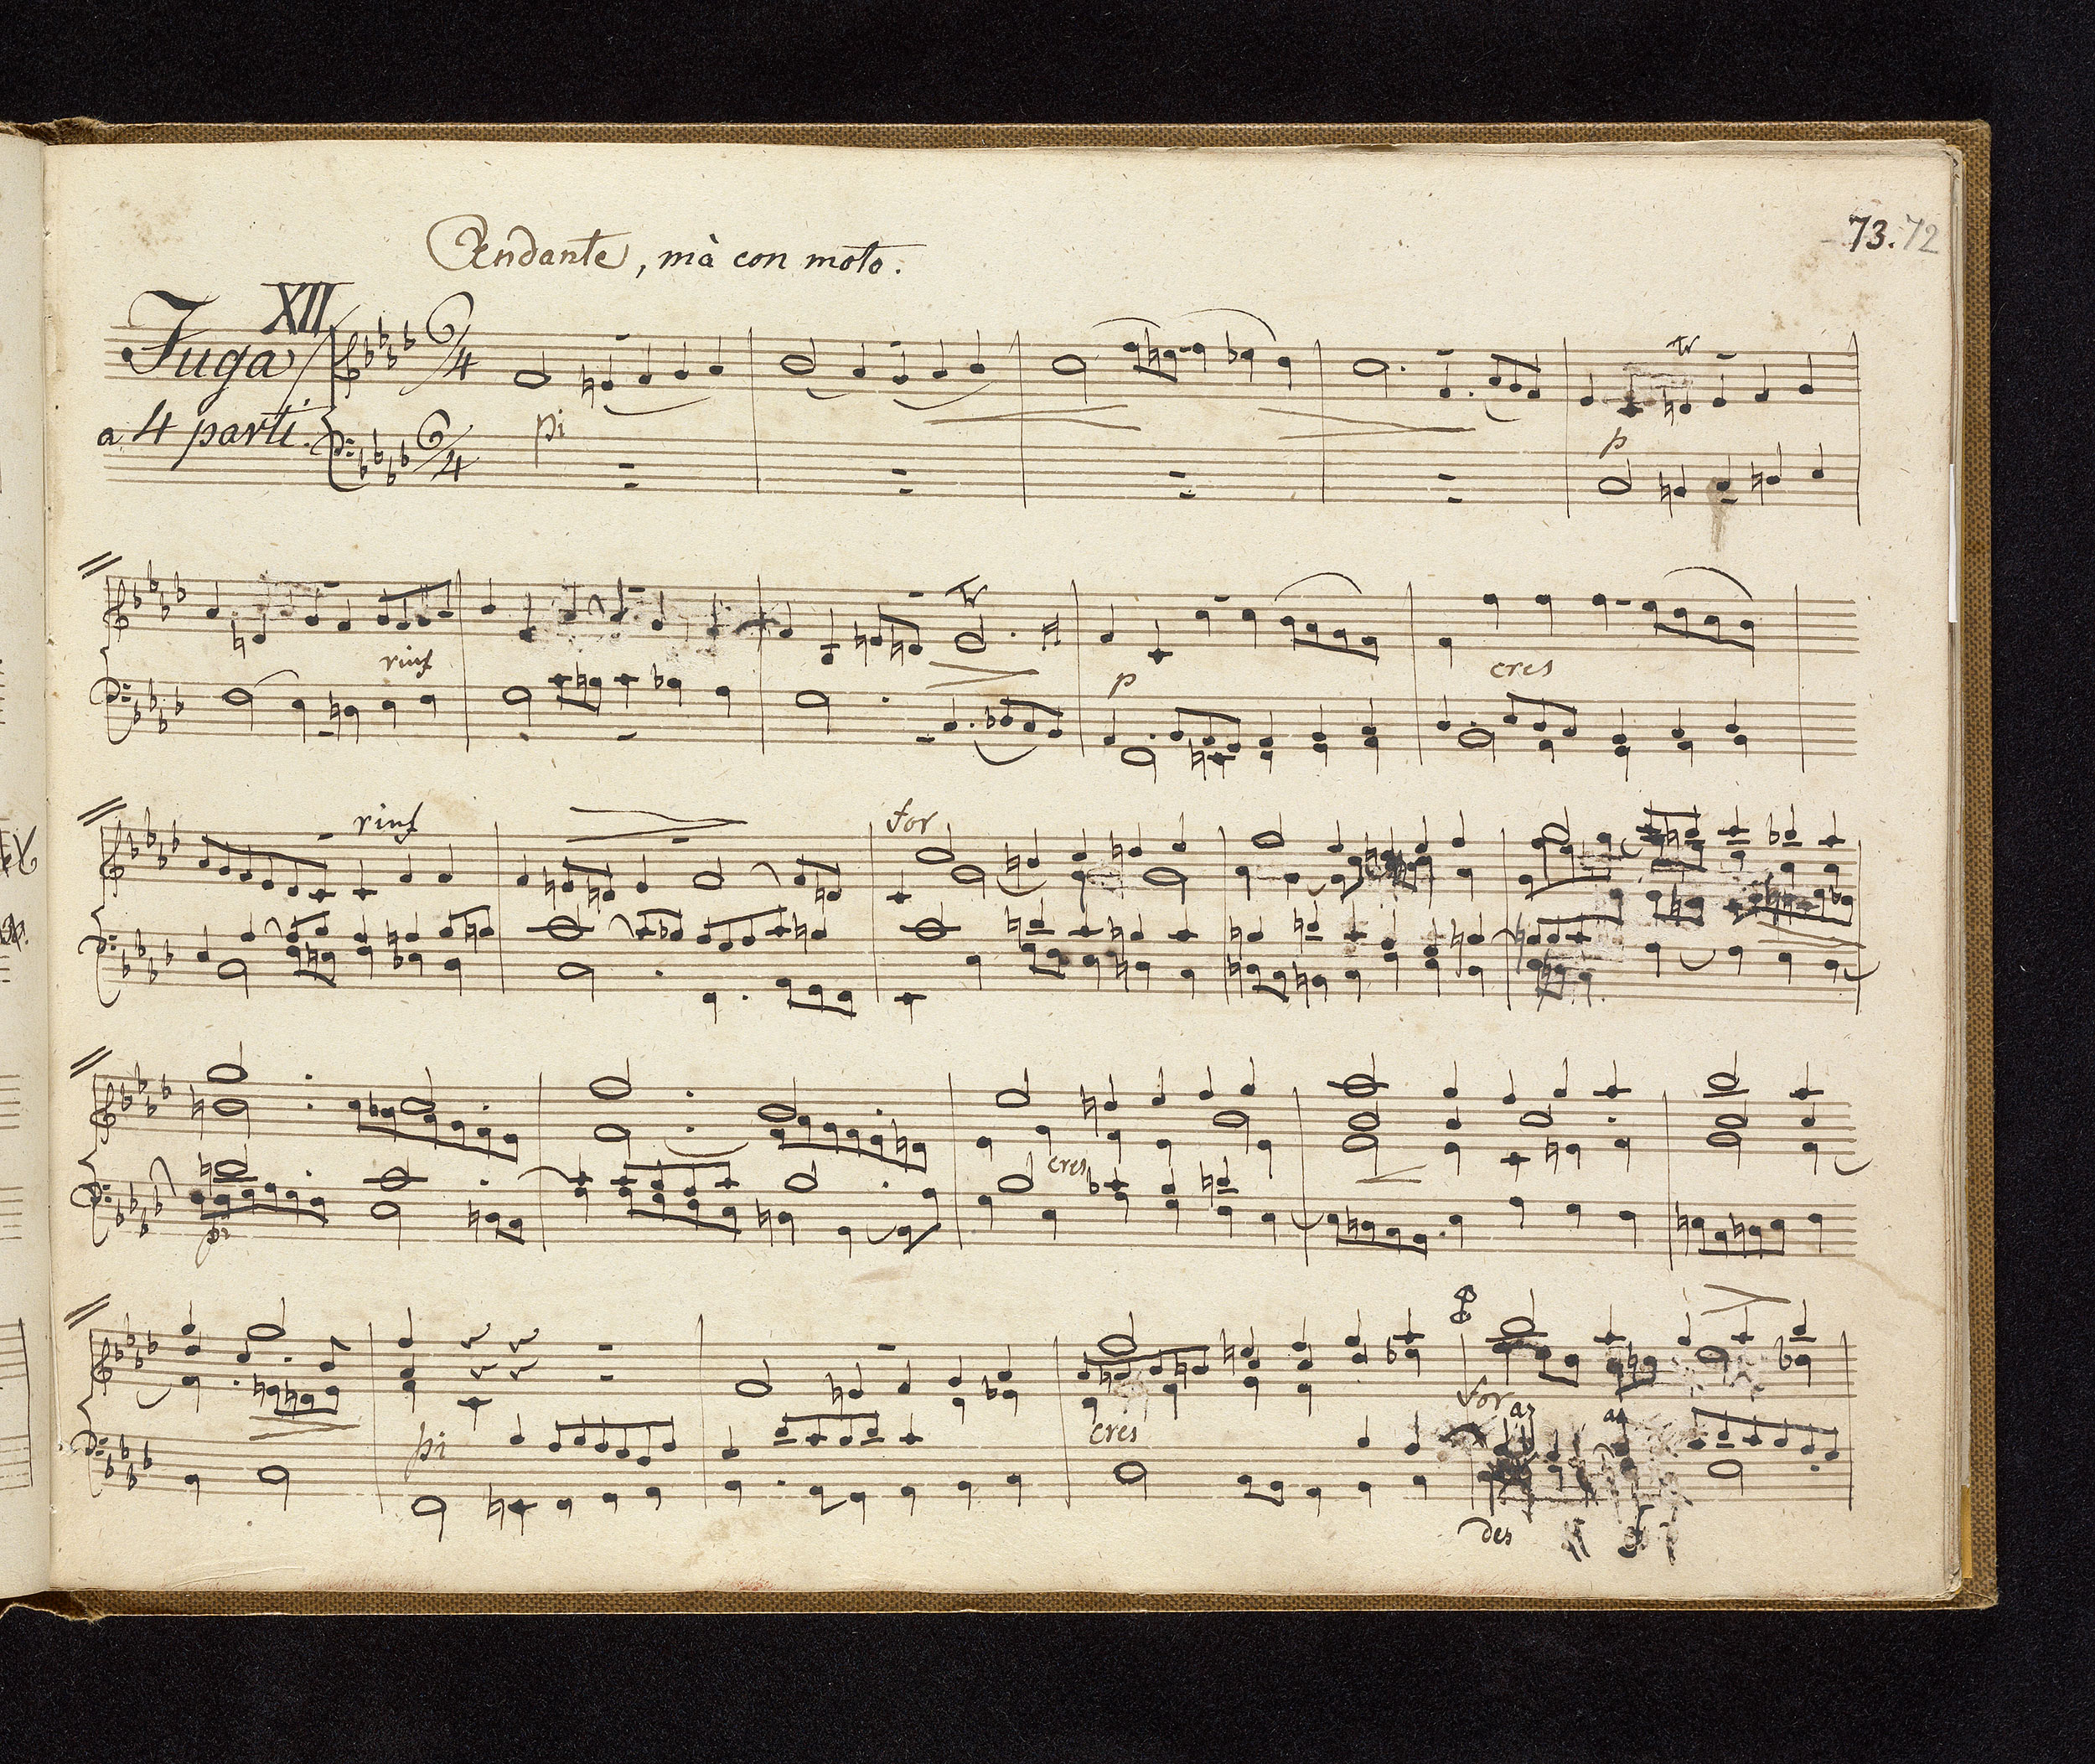 73. 72
Andante, mà con moto.
XII
Fuga
a 4 parti.
6/4
6/4
pi
tr
p
tr
rinf
p
cres
rinf
for
cres
pi
pi
cres
for
des